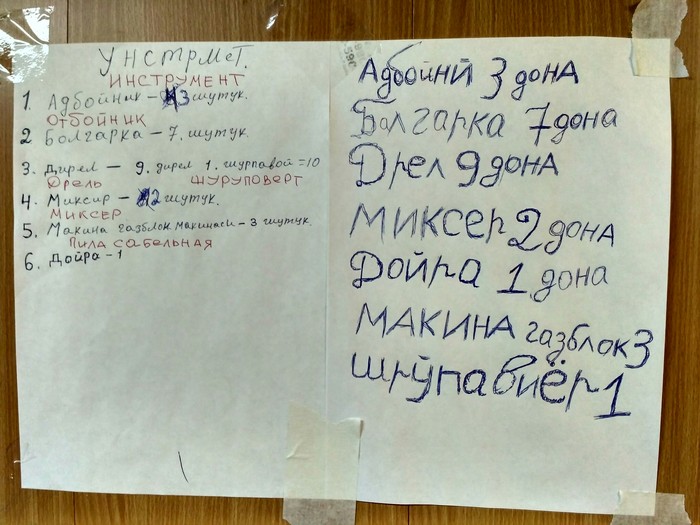 УНСТРМеТ.
ИНСТРУМЕНТ
1. Адбойник – 3 шутук.
ОТБОЙНИК
2 Болгарка – 7. шутук.
3. Дирел – 9. дирел 1. шурпавой =10
ДРЕЛЬ ШУРУПОВЕРТ
4. Миксир – 2 шутук.
МИКСЕР
5. Макина газблок макинаси – 3 шутук.
ПИЛА САБЕЛЬНАЯ
6. Дойра – 1
Адбойнй 3 дона
Балгарка 7 дона
Дрел 9 дона
Миксер 2 дона
Дойра 1 дона
МАКИНА газблок 3
Шрўпавиёр 1